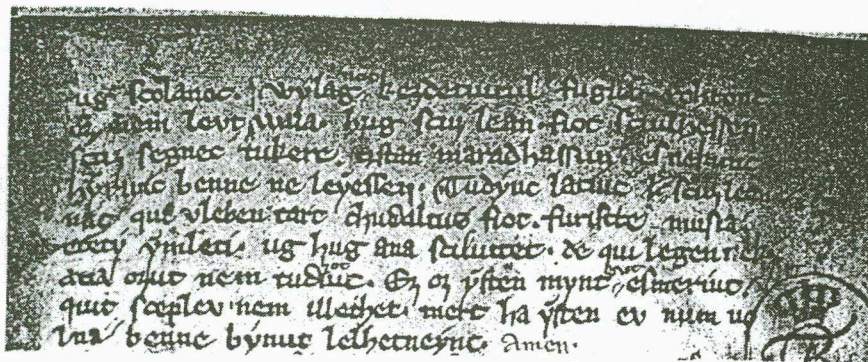 ug scolanoc. wylag kezdetuitul fugua
ez nem levt vvla. hug scuz lean. fiot sciulhessen
scuz segnec tukere. tistan maradhassun. es nekunc
hyrunc benne ne leyessen. Tudyuc latiuc scuz lean
nac qui vleben tart chudaltus fiot. furiscte musia
etety ymleti. ug hug ana sciluttet. de qui legen
atia ozut nem tudiuc. Ez oz ysten mynt esmeriuc
quit sceplev nem illethet. mert ha ysten ev num uo
lna benne bynut lelhetneync. Amen.